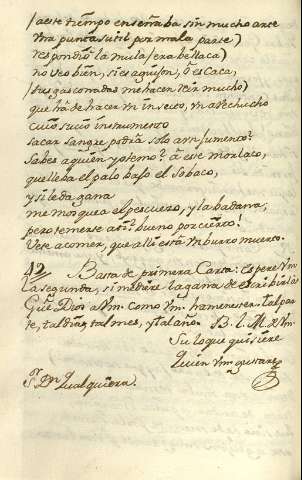 (a este tiempo enseñaba sin mucho arte
Vna punta sutil por mala parte)
respondio la mula (era bellaca)
no veo bien, si es aguijon, ò es caca,
(tus gasconadas me hacen reir mucho)
que hà de hacer Vn insecto, vn avechucho
cuio sucio instrumento
sacar sangre podrà solo à vn jumento?
Sabes aquien yo temo? à ese morlaco,
que lleba el palo bajo el sobaco,
y si le da gana
me mosquea el pescuezo, y la badana;
pero temerse ati? bueno por cierto!
Vete a comer, que alli està Vn burro muerto.
42 Basta de primera Carta: Espere Vm
la segunda, si mediere la gana de escribirla:
Gue Dios a Vm. como Vm. ha menester. Tal par-
te, tal dia, tal mes, y tal año. B. L. M. de Vm.
Su lo que quisiere
Quien Vm. gustare
Sr. Dn. Qualquiera.